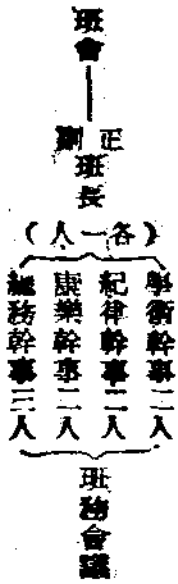 班會
正副班長
（各一人）
學術幹事二人
紀律幹事二人
康樂幹事二人
總務幹事三人
班務會議